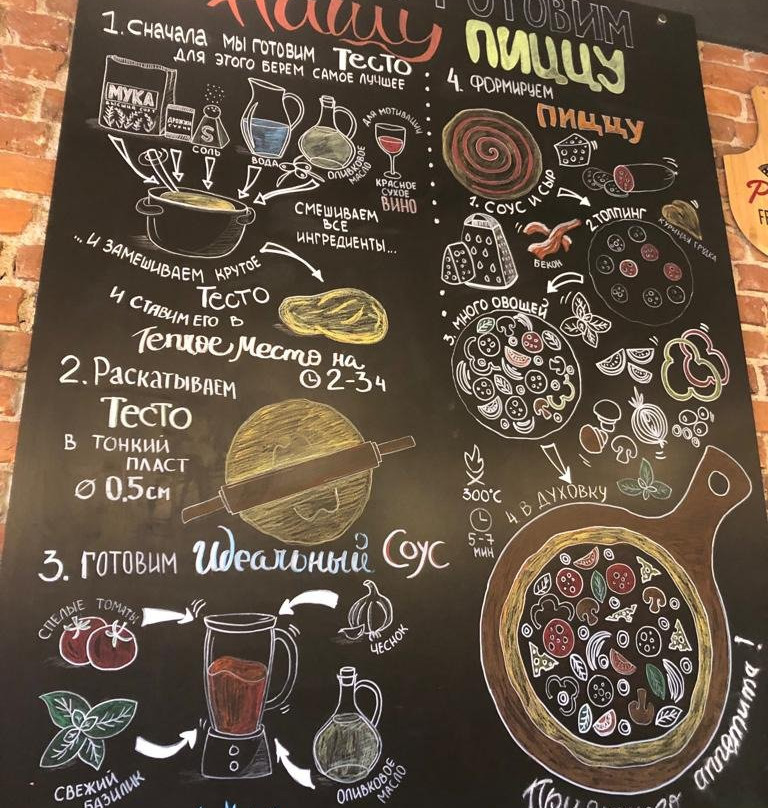 Нашу
ГОТОВИМ
ПИЦЦУ
1. Сначала мы готовим Тесто
для этого берем самое лучшее
МУКА
ВЫСШИЙ СОРТ
ДРОЖЖИ
СУХИЕ
S
СОЛЬ
ВОДА
ОЛИВКОВОЕ
МАСЛО
ДЛЯ МОТИВАЦИИ
КРАСНОЕ
СУХОЕ
ВИНО
СМЕШИВАЕМ
ВСЕ
ИНГРЕДИЕНТЫ...
...И ЗАМЕШИВАЕМ КРУТОЕ
ТЕСТО
И СТАВИМ ЕГО В
Теплое Место на
2-3ч
2. Раскатываем
ТЕСТО
В ТОНКИЙ
ПЛАСТ
Ø 0.5см
3. ГОТОВИМ Идеальный Соус
СПЕЛЫЕ ТОМАТЫ
ЧЕСНОК
СВЕЖИЙ
БАЗИЛИК
ОЛИВКОВОЕ
МАСЛО
4. ФОРМИРУЕМ
ПИЦЦУ
1. СОУС И СЫР
2. ТОППИНГ
КУРИНАЯ ГРУДКА
БЕКОН
3. МНОГО ОВОЩЕЙ
300°С
5-7
МИН
4. В ДУХОВКУ
аппетита!